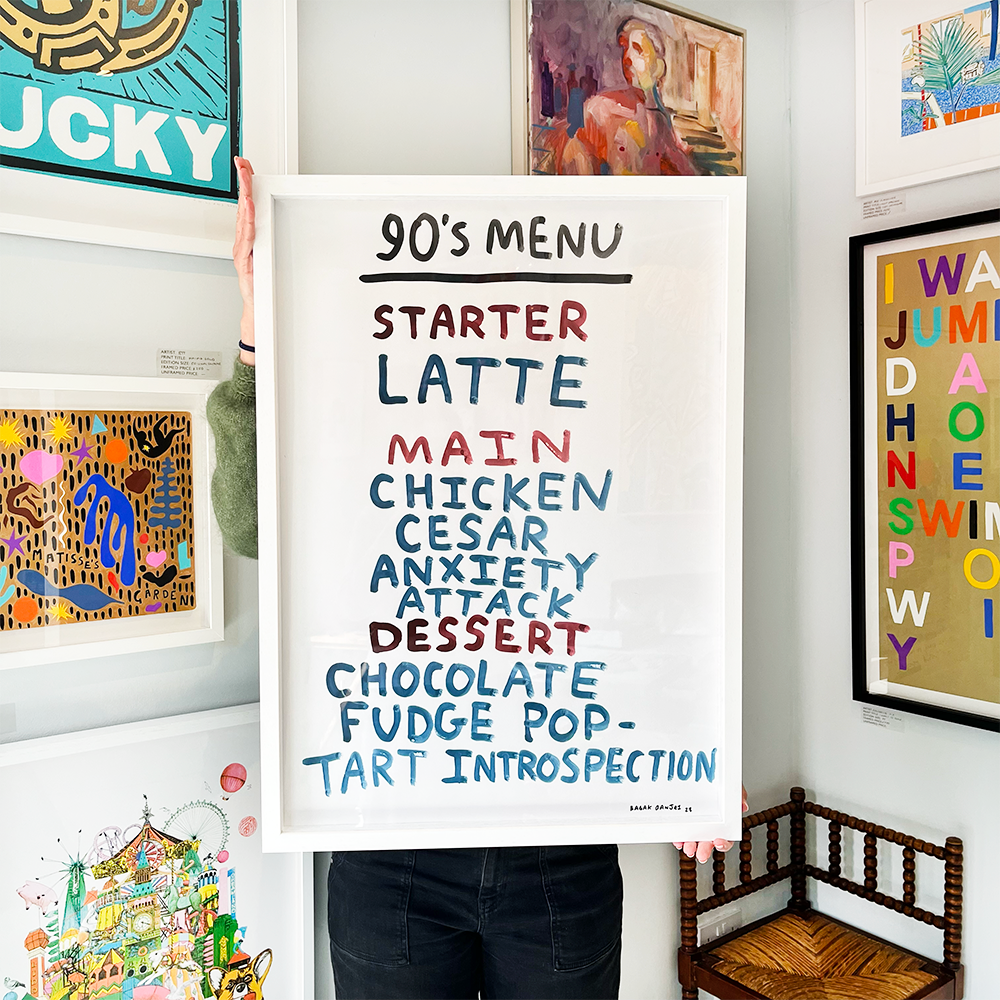 UCKY
90'S MENU
STARTER
LATTE
MAIN
CHICKEN
CESAR
ANXIETY
ATTACK
DESSERT
CHOCOLATE
FUDGE POP-
TART INTROSPECTION
BABAK GANJEI
MATISSE'S
GARDEN
I WA
JUM
D A
H O
N E
SWIM
P O
W I
Y